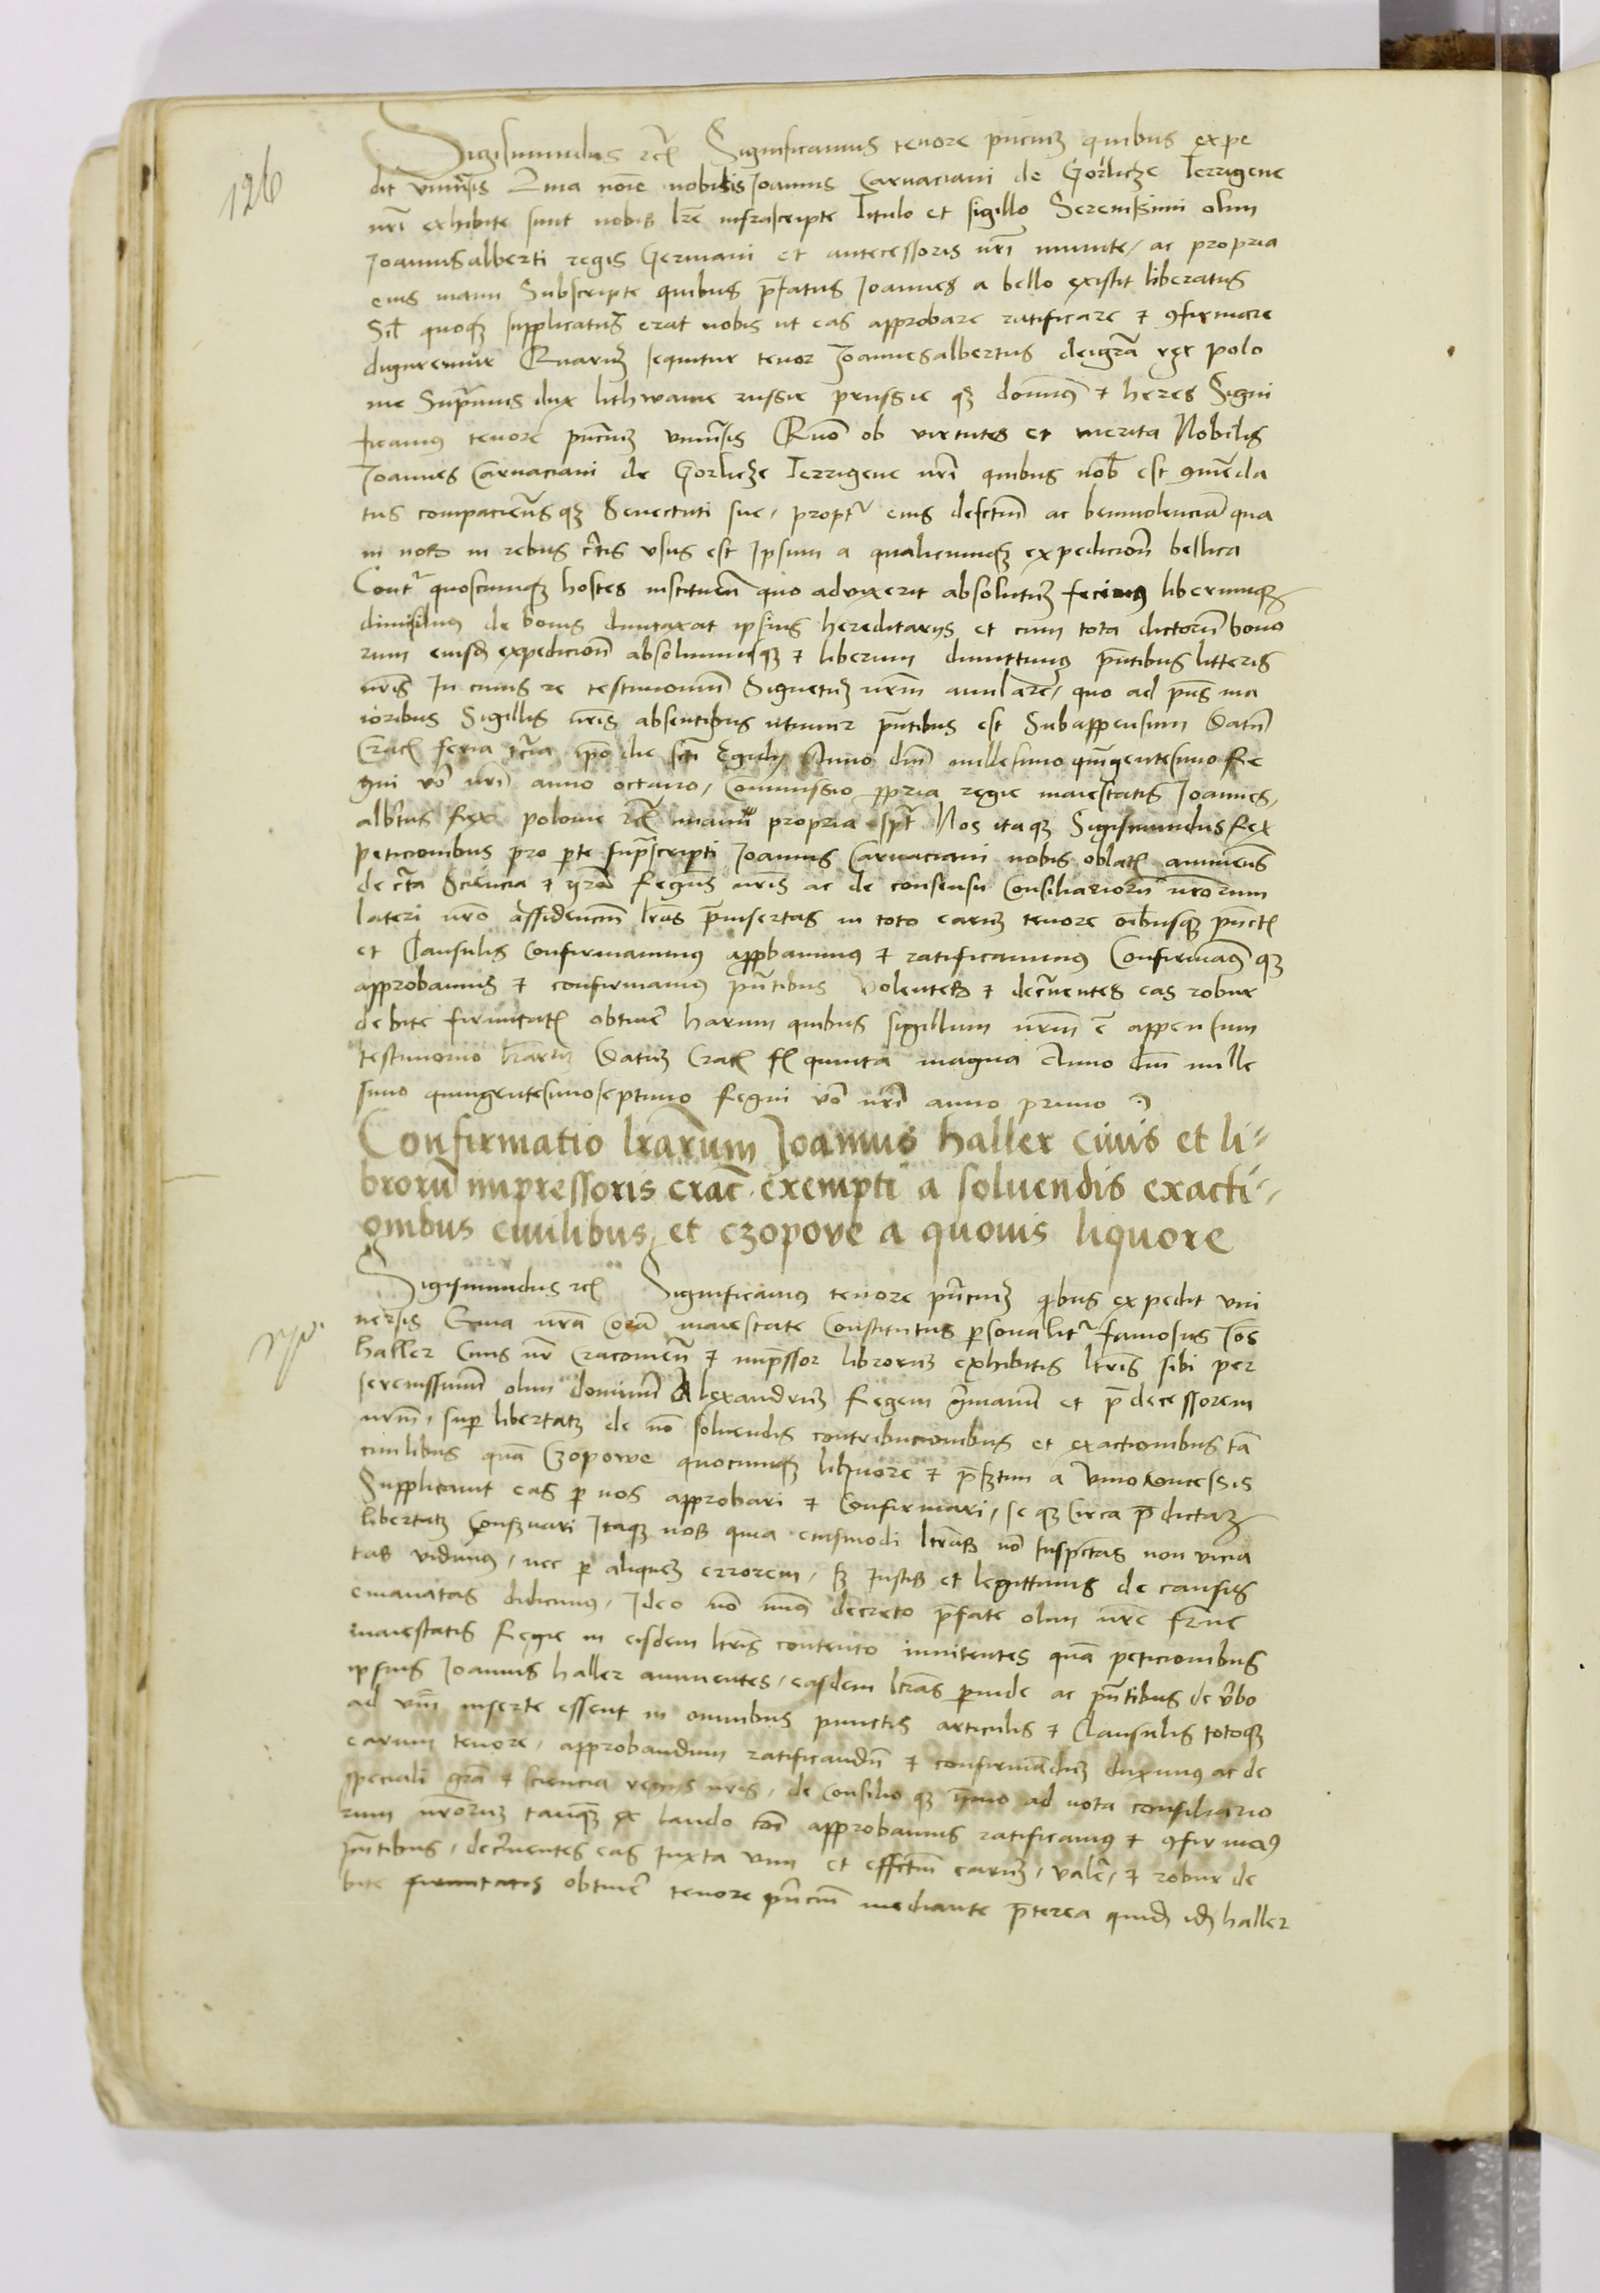 126
Sigismundus rc̄ Significamus tenore pn̄ciuȝ quibus expe
dit vniūsis Quia noīe nobilis Joannis Carnaciani de Gorlicze Terrigene
nr̄i exhibite sunt nobis lrē infrascripte Titulo et sigillo Serenissimi olim
Joannisalberti regis Germani et antecessoris nr̄i munite, ac propria
eius manu Subscripte quibus p̄fatus Joannes a bello existit liberatus
Sil̄ quoqȝ supplicatus erat nobis ut eas approbare ratificare ⁊ ꝯfirmare
dignaremur Quaruȝ sequitur tenor Joannesalbertus deigrā rex polo
nie Supremus dux lithwanie russie prussie qȝ domīꝰ ⁊ heres Signi
ficamꝰ tenore pn̄ciuȝ vniūsis Quō ob virtutes et merita Nobilis
Joannes Carnaciani de Gorlicze Terrigene nr̄i quibus nob̄ est ꝯmēda
tus compaciens qȝ Senectuti sue, propt̄ eius defctum ac beniuolenciā qua
in nos in rebus c̄tis vsus est Ipsum a qualicunqȝ expedicion̄ bellica
Contr̄ quoscunqȝ hostes instituen̄ quo aduixerit absolutuȝ fecimꝰ liberumqȝ
dimisimꝰ de bonis duntaxat ipsius hereditarijs et cum tota dictorū bono
rum eiusd̄ expedicion̄ absoluimusqȝ ⁊ liberum dimittimꝰ pn̄tibus litteris
nr̄is In cuius re testimoniū Signetuȝ nr̄m anulare, quo ad pn̄s ma
ioribus Sigillis nr̄is absentibus utimur pn̄tibus est Subappensum Datū
Crac̄ feria tercia ip̄o die sc̄ti Egidij Anno dn̄i millesimo quīgentesimo Re
gni vō nr̄i anno octauo, Commissio ꝓpria regie maiestatis Joannes,
alb̄tus Rex polonie rc̄ manu propria sp̄t Nos itaqȝ Sigismundus Rex
peticionibus pro pte sup̄scripti Joannis Carnaciani nobis oblat̄ annuens
de c̄ta Sciencia ⁊ grā Regijs nr̄is ac de consensu Consiliariorū nrōrum
lateri nrō assidenciū lrās p̄insertas in toto earuȝ tenore oībusqȝ punct̄
et Clausulis Confirmamus apꝓbamus ⁊ ratificamus Confirmāꝰ qȝ
approbamus ⁊ confirmamus pn̄tibus volentes ⁊ dec̄nentes eas robur
debite firmitat̄ obtinē harum quibus sigillum nr̄m ē appensum
testimonio lrārū Datuȝ Crac̄ f̄ quinta magna Anno dn̄i mille
simo quingentesimoseptimo Regni vō nr̄i anno primo
Confirmatio lrārum Joannis haller ciuis et li=
brorū impressoris crac̄. exempti a soluendis exacti-
onibus ciuilibus, et czopove a quouis liquore
Sigismundus rc̄ Significamꝰ tenore pn̄ciuȝ qibus expedit vni
uersis Quia nrā corā maiestate Constitutus ꝑsonalit̄ famosus Joēs
haller Ciuis nr̄ Cracouien̄ ⁊ imp̄ssor librorum exhibitis lr̄is sibi per
serenissimū olim dominū Alexandruȝ Regem ḡmanū et p̄decessorem
nr̄m, suꝑ libertatȝ de nō soluendis contribucionibus et exactionibus tā
ciuilibus quā Czopowe quocunqȝ lihuore ⁊ p̄sȝtim a vino concessis
Supplicauit eas ꝑ nos approbari ⁊ Confirmari, se qȝ Circa p̄dictaȝ
libertatȝ Conseruari Itaqȝ nos quia eiusmodi lrās nō suspectas non vicia
tas vidimꝰ, nec ꝑ aliquem errorem, sȝ Justis et legittimis de causis
emanatas didicimus, Ideo nō minꝰ decreto p̄fate olim nrē frn̄e
maiestatis Regie in eisdem lr̄is contento innitentes quā peticionibus
ipsius Joannis haller annuentes, easdem lrās perinde ac pn̄tibus de v̄bo
ad vm̄ inserte essent in omnibus punctis articulis ⁊ Clausulis totoqȝ
earum tenore, approbandum ratificandū ⁊ confirmādum duximꝰ ac de
speciali grā ⁊ sciencia regijs nr̄is, de Consilio qȝ ymo ad uota consiliario
rum nrōruȝ tanqȝ ex laudo cōi approbamus ratificamꝰ ⁊ ꝯfirmaꝰ
pn̄tibus, dec̄nentes eas Juxta vim et effctum earuȝ, valē, ⁊ robur de
bite firmitatis obtinē tenore pn̄ciū mediante p̄terea quid idȝ haller